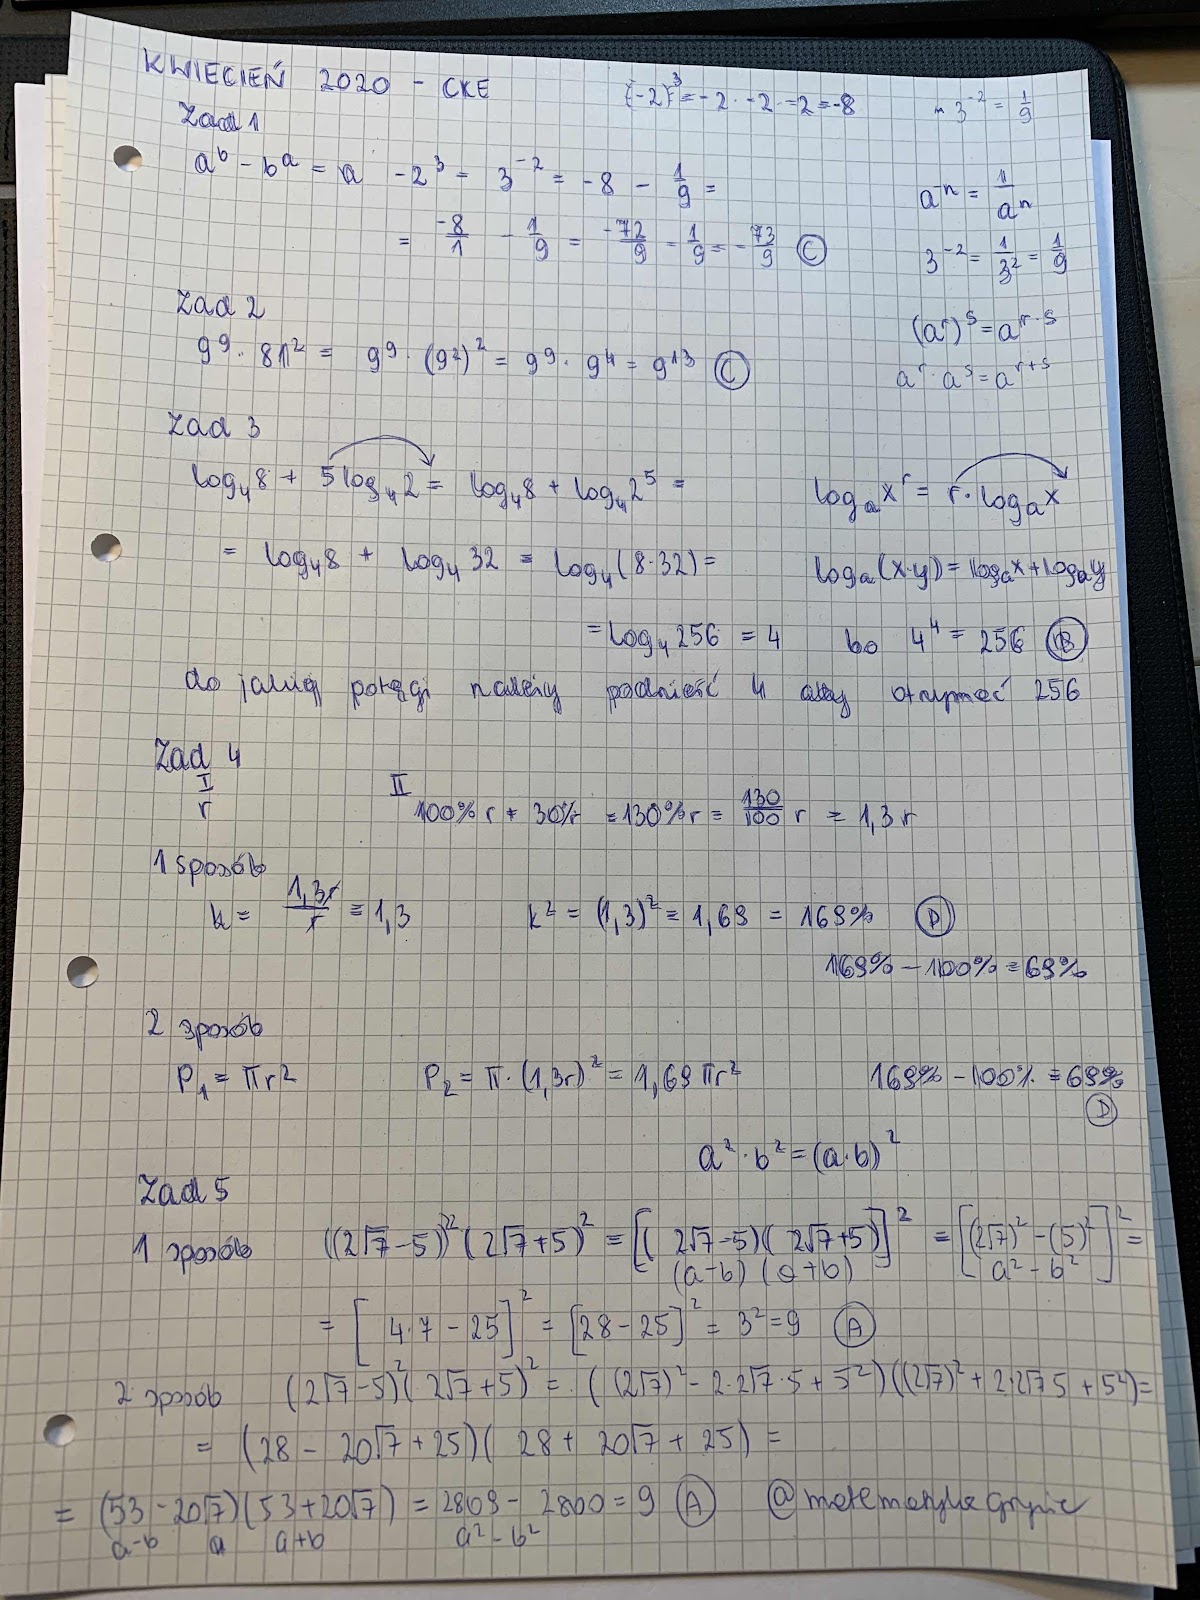 KWIECIEŃ 2020 - CKE (-2)³ = -2 · -2 · -2 = -8 3⁻² = 1/9
Zad 1
aᵇ - bᵃ = -2³ - 3⁻² = -8 - 1/9 = a⁻ⁿ = 1/aⁿ
= -8/1 - 1/9 = -72/9 - 1/9 = -73/9 (C) 3⁻² = 1/3² = 1/9
Zad 2 (aʳ)ˢ = aʳ·ˢ
9⁹ · 81² = 9⁹ · (9²)² = 9⁹ · 9⁴ = 9¹³ (C) aʳ · aˢ = aʳ⁺ˢ
Zad 3
log₄8 + 5log₄2 = log₄8 + log₄2⁵ = logₐxʳ = r · logₐx
= log₄8 + log₄32 = log₄(8·32) = logₐ(x·y) = logₐx + logₐy
= log₄256 = 4 bo 4⁴ = 256 (B)
do jakiej potęgi należy podnieść 4 aby otrzymać 256
Zad 4
I II
r 100%r + 30%r = 130%r = 130/100 r = 1,3r
1 sposób
k = 1,3r/r = 1,3 k² = (1,3)² = 1,69 = 169% (D)
169% - 100% = 69%
2 sposób
P₁ = πr² P₂ = π·(1,3r)² = 1,69πr² 169% - 100% = 69%
(D)
a² · b² = (a·b)²
Zad 5
1 sposób ((2√7-5)²(2√7+5)² = [(2√7-5)(2√7+5)]² = [(2√7)² - (5)²]² =
(a-b) (a+b) a² - b²
= [4·7 - 25]² = [28-25]² = 3² = 9 (A)
2 sposób (2√7-5)²(2√7+5)² = ((2√7)² - 2·2√7·5 + 5²)((2√7)² + 2·2√7 5 + 5²) =
= (28 - 20√7 + 25)(28 + 20√7 + 25) =
= (53 - 20√7)(53 + 20√7) = 2809 - 2800 = 9 (A)
a-b a a+b a² - b²